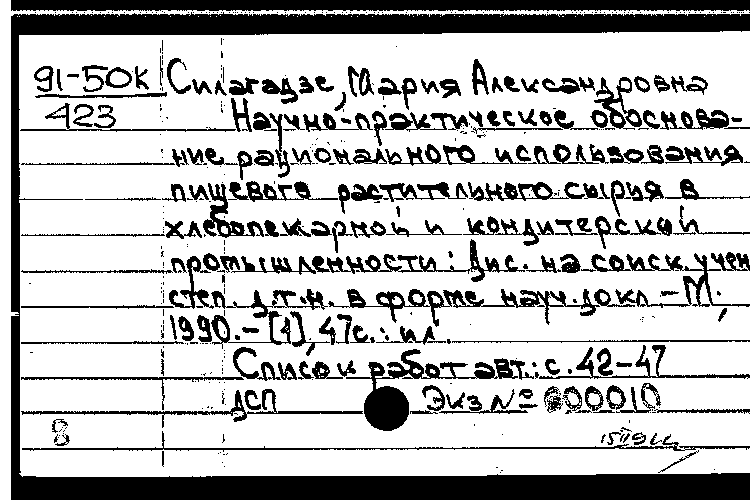 91-50к Силагадзе, Мария Александровна
423 Научно-практическое обоснова-
ние рационального использования
пищевого растительного сырья в
хлебопекарной и кондитерской
промышленности: Дис. на соиск. учен
степ. д.т.н. в форме науч. докл. – М.,
1990. – [1], 47с.: ил.
Список работ авт.: с. 42–47
ДСП Экз № 000010
8